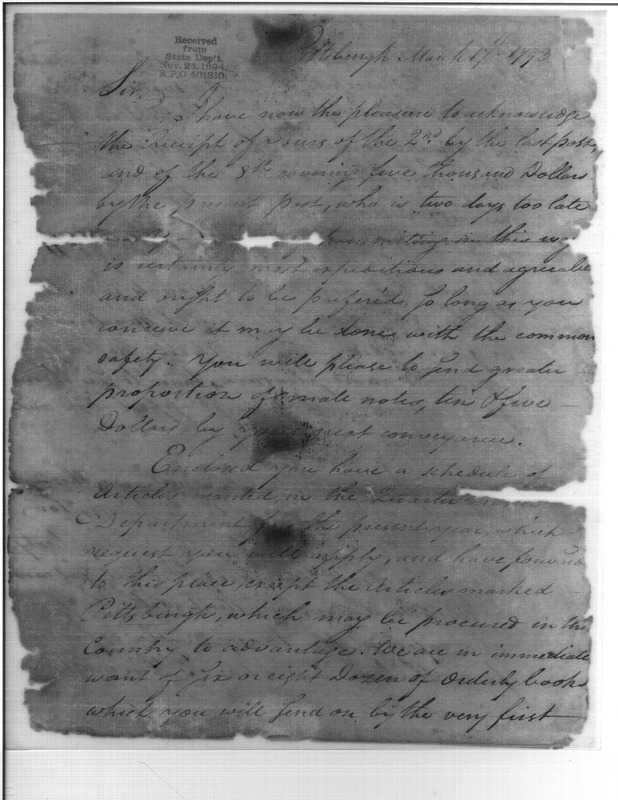 Received
from
State Dep't.
Nov. 24, 1894.
R.P.O. 401810.
Pittsburgh March 17th 1793
Sir.
I have now the pleasure to acknowledge
the Receipt of yours of the 2nd by the last post,
and of the 8th covering five thousand Dollars
by the present post, who is two days too late
in this way
is certainly most expeditious and agreeable
and ought to be prefered, so long as you
conceive it may be done with the common
safety. You will please to send greater
proportion of small notes, ten & five
Dollars by your next conveyance.
Enclosed you have a schedule of
Articles wanted in the Quarter
Department for the present year, which
request you will supply, and have forward
to this place, except the Articles marked
Pittsburgh, which may be procured in the
Country to advantage. We are in immediate
want of six or eight Dozen of Orderly books
which you will send on by the very first